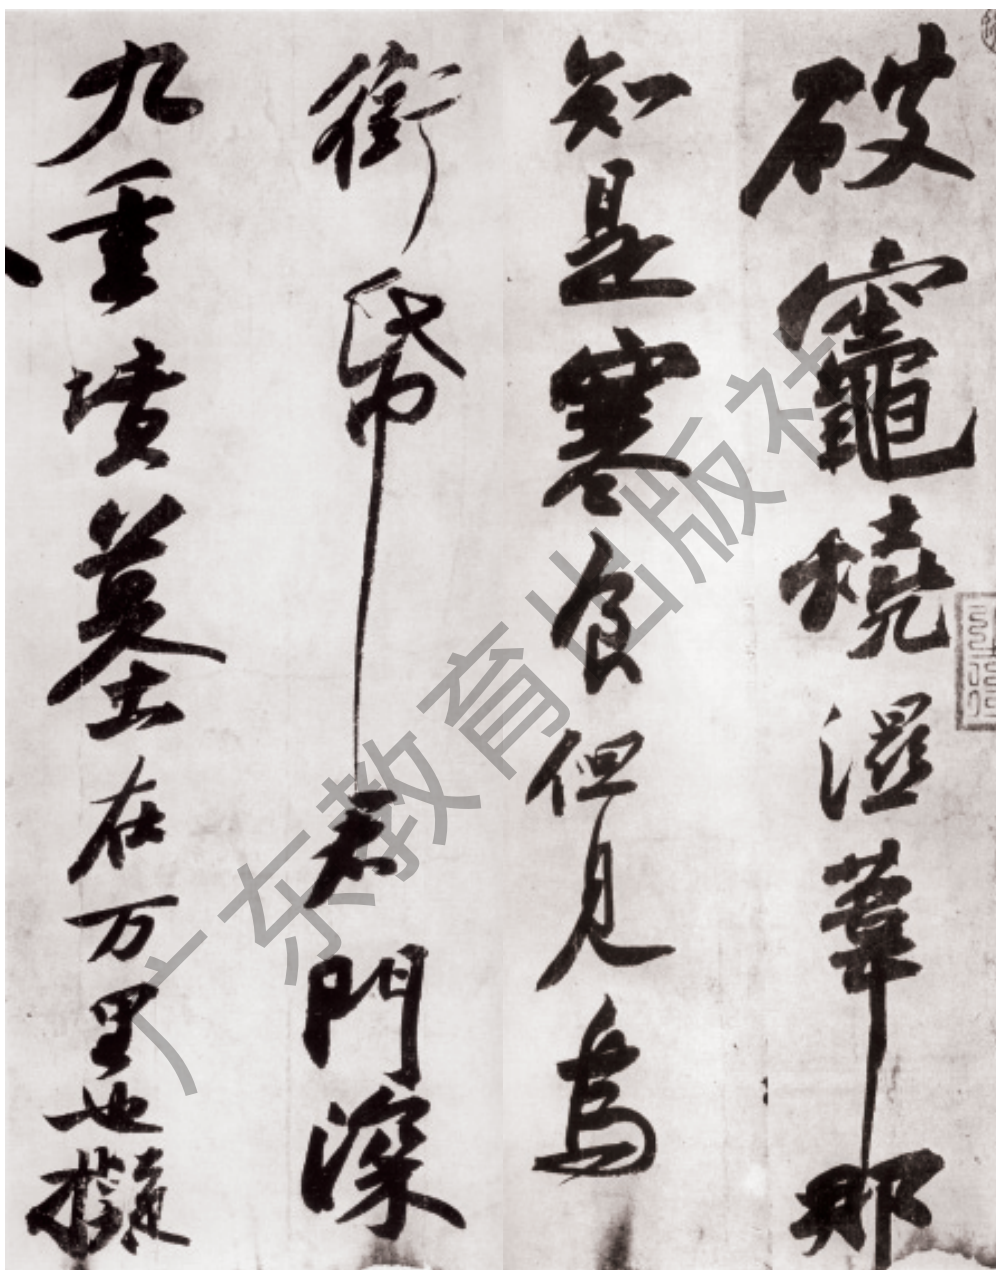 破竈燒濕葦那
知是寒食但見烏
銜帋君門深
九重墳墓在万里也擬
广东教育出版社